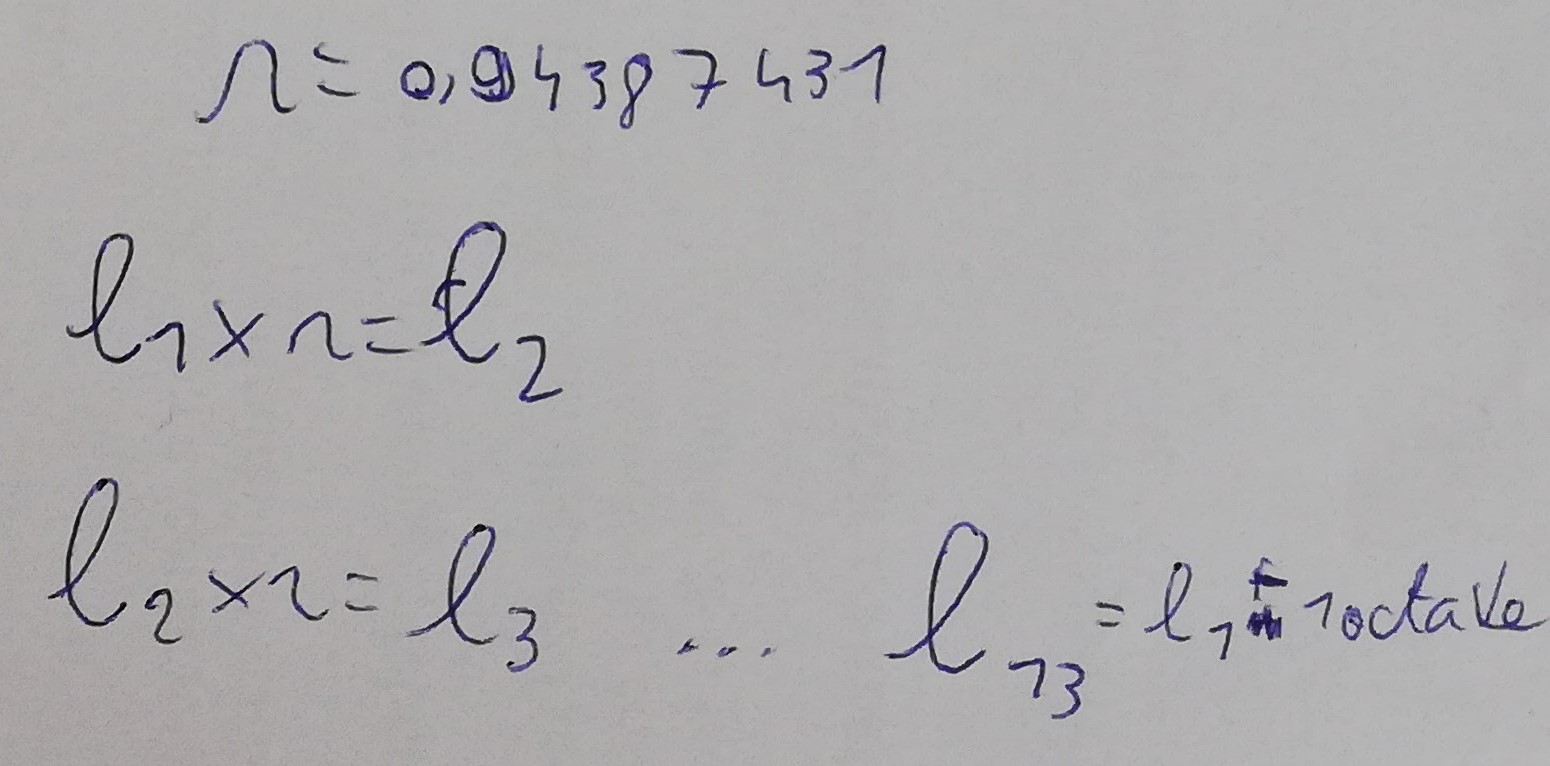 r = 0,94387431
l₁ x r = l₂
l₂ x r = l₃ ... l₁₃ = l₁ 1octave